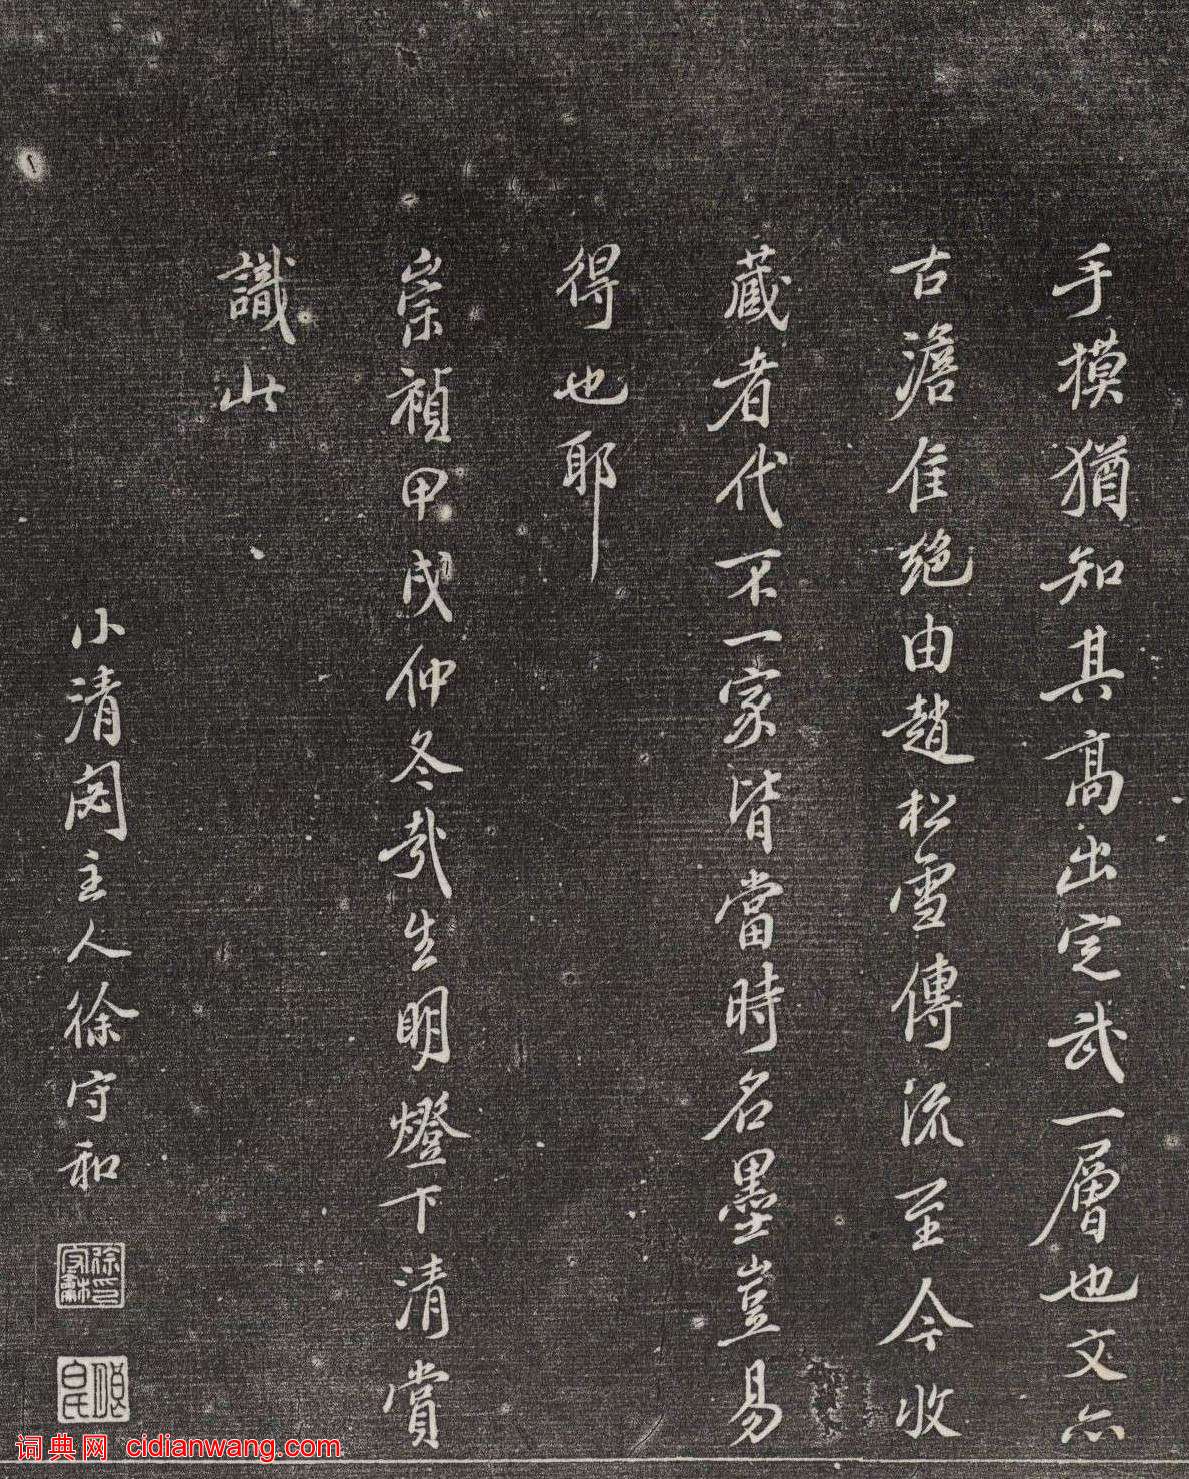 手摸猶知其高出定武一層也文亦
古澹隹絶由趙松雪傳流至今收
藏者代不一家皆當時名墨豈易
得也耶
崇禎甲戌仲冬哉生明燈下清賞
識此
小清閟主人徐守和
徐守和印
词典网 cidianwang.com